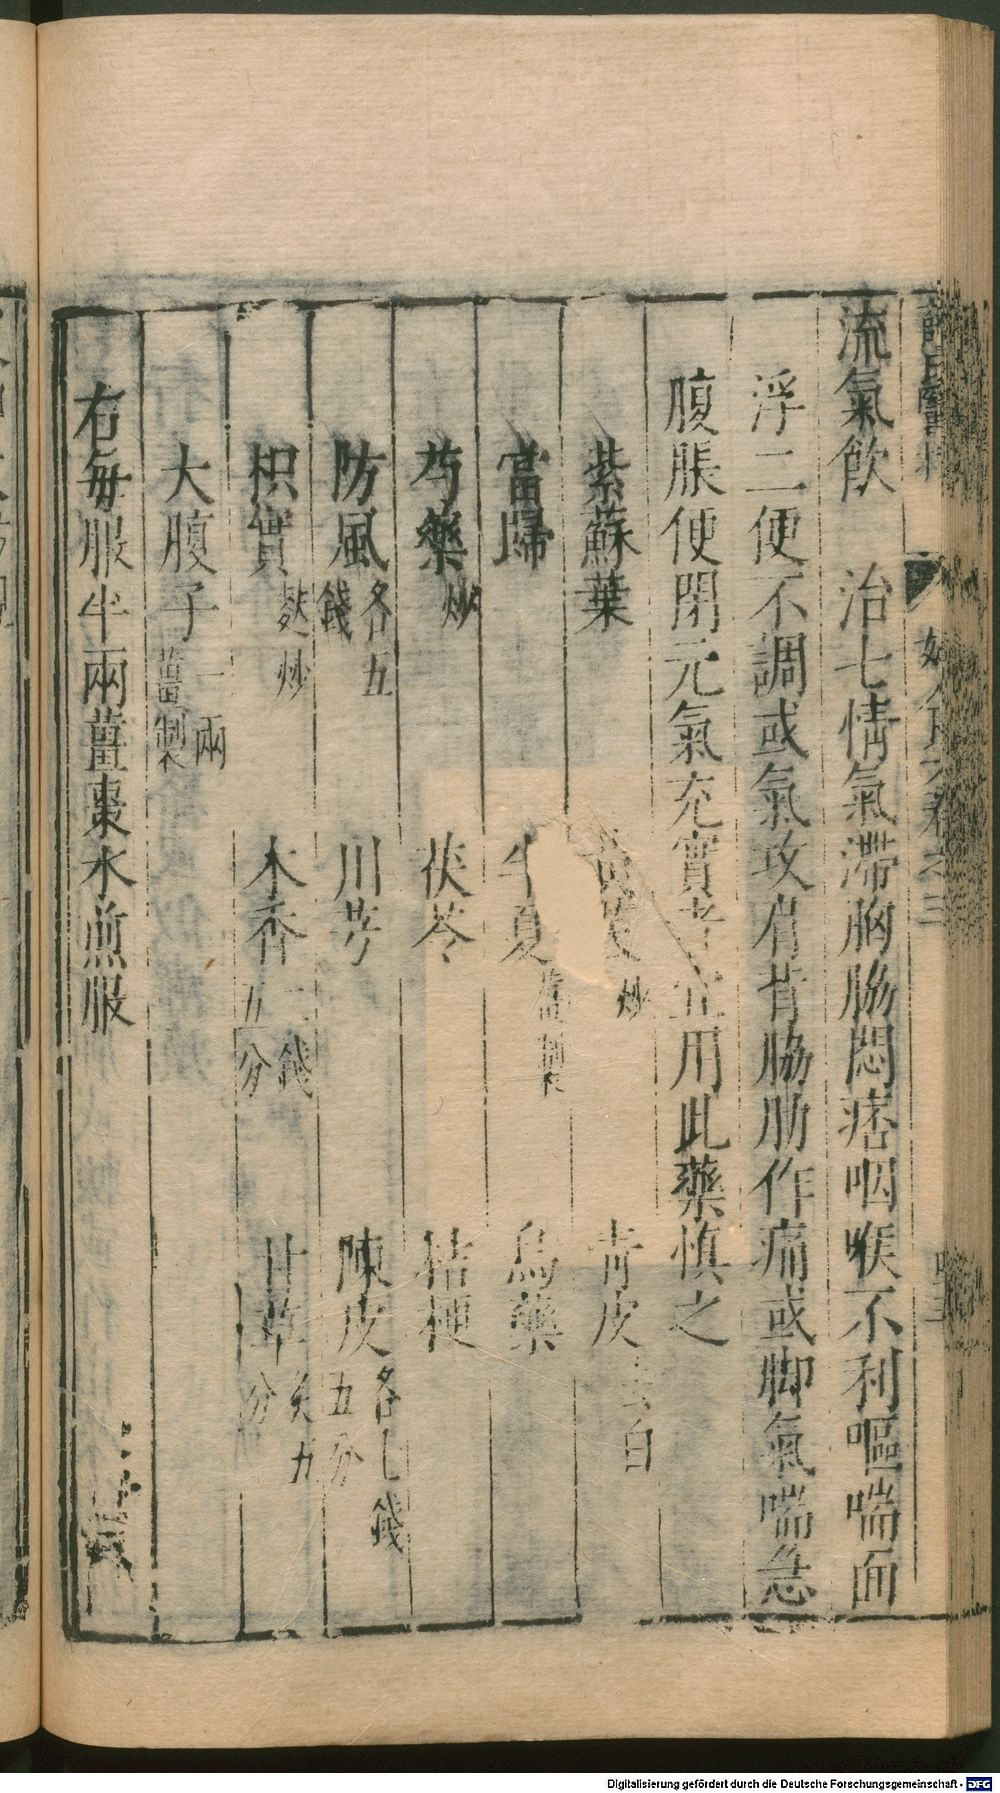 流氣飲　治七情氣滯胸脇悶痞咽喉不利嘔喘面
浮二便不調或氣攻肩背脇肋作痛或脚氣喘急
腹脹便閉元氣充實者宜用此藥慎之
紫蘇葉　炒　青皮去白
當歸　半夏薑製　烏藥
芍藥炒　茯苓　桔梗
防風各五錢　川芎　陳皮各七錢五分
枳實麩炒　木香二錢五分　甘草炙五分
大腹子一兩薑製
右每服半兩薑棗水煎服
Digitalisierung gefördert durch die Deutsche Forschungsgemeinschaft - DFG